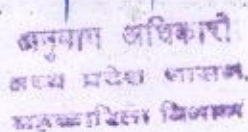 अनुभाग अधिकारी
मध्य प्रदेश शासन,
विभाग